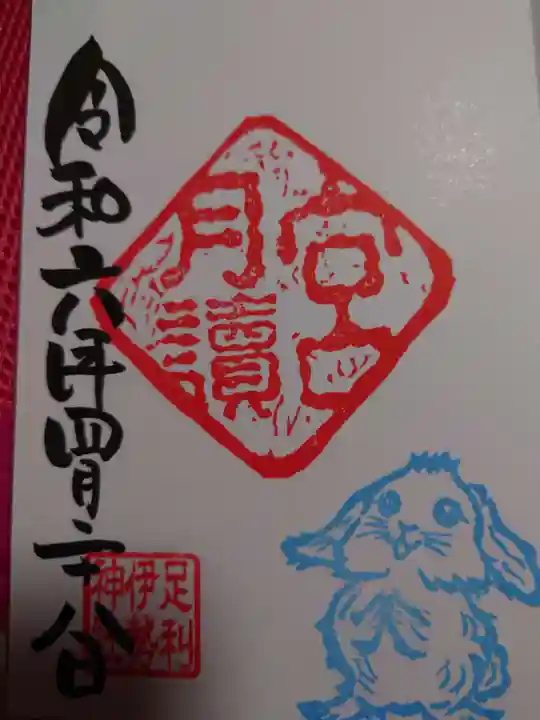 宮
月讀
足利
伊勢
神社
令和六年四月二十八日